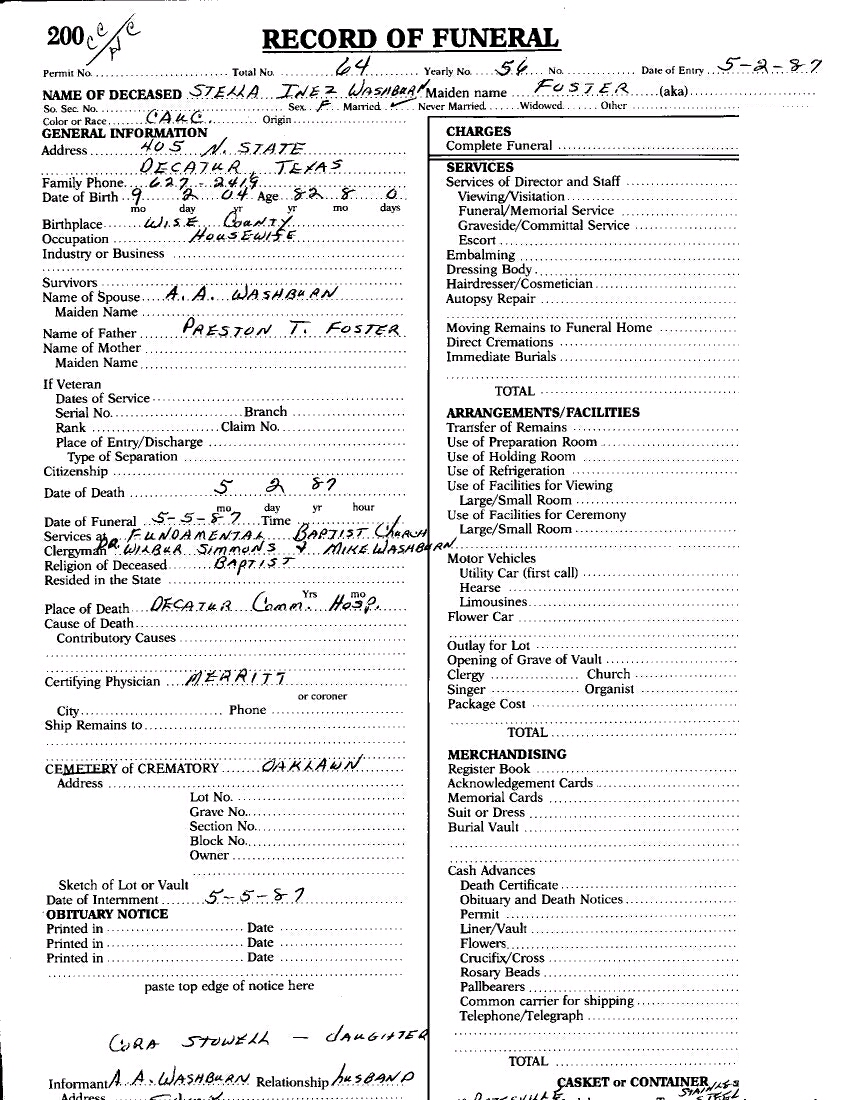 200 CC/NC
RECORD OF FUNERAL
Permit No. Total No. 64 Yearly No. 56 No. Date of Entry 5-2-87
NAME OF DECEASED STELLA INEZ WASHBURN Maiden name FOSTER (aka)
So. Sec. No. Sex F Married ✓ Never Married Widowed Other
Color or Race CAUC. Origin
GENERAL INFORMATION
Address 405 N. STATE
DECATUR, TEXAS
Family Phone 627-2419
Date of Birth 9 2 04 Age 82 8 0
mo day yr yr mo days
Birthplace WISE COUNTY
Occupation HOUSEWIFE
Industry or Business
Survivors
Name of Spouse A. A. WASHBURN
Maiden Name
Name of Father PRESTON T. FOSTER
Name of Mother
Maiden Name
If Veteran
Dates of Service
Serial No. Branch
Rank Claim No.
Place of Entry/Discharge
Type of Separation
Citizenship
Date of Death 5 2 87
mo day yr hour
Date of Funeral 5-5-87 Time
Services at FUNDAMENTAL BAPTIST CHURCH
Clergyman DR. WILBUR SIMMONS & MIKE WASHBURN
Religion of Deceased BAPTIST
Resided in the State
Yrs mo
Place of Death DECATUR Comm. Hosp.
Cause of Death
Contributory Causes
Certifying Physician MERRITT
or coroner
City Phone
Ship Remains to
CEMETERY of CREMATORY OAKLAWN
Address
Lot No.
Grave No.
Section No.
Block No.
Owner
Sketch of Lot or Vault
Date of Internment 5-5-87
OBITUARY NOTICE
Printed in Date
Printed in Date
Printed in Date
paste top edge of notice here
CORA STOWELL - DAUGHTER
Informant A. A. WASHBURN Relationship HUSBAND
Address
CHARGES
Complete Funeral
SERVICES
Services of Director and Staff
Viewing/Visitation
Funeral/Memorial Service
Graveside/Committal Service
Escort
Embalming
Dressing Body
Hairdresser/Cosmetician
Autopsy Repair
Moving Remains to Funeral Home
Direct Cremations
Immediate Burials
TOTAL
ARRANGEMENTS/FACILITIES
Transfer of Remains
Use of Preparation Room
Use of Holding Room
Use of Refrigeration
Use of Facilities for Viewing
Large/Small Room
Use of Facilities for Ceremony
Large/Small Room
Motor Vehicles
Utility Car (first call)
Hearse
Limousines
Flower Car
Outlay for Lot
Opening of Grave of Vault
Clergy Church
Singer Organist
Package Cost
TOTAL
MERCHANDISING
Register Book
Acknowledgement Cards
Memorial Cards
Suit or Dress
Burial Vault
Cash Advances
Death Certificate
Obituary and Death Notices
Permit
Liner/Vault
Flowers
Crucifix/Cross
Rosary Beads
Pallbearers
Common carrier for shipping
Telephone/Telegraph
TOTAL
CASKET or CONTAINER STAINLESS
STEEL